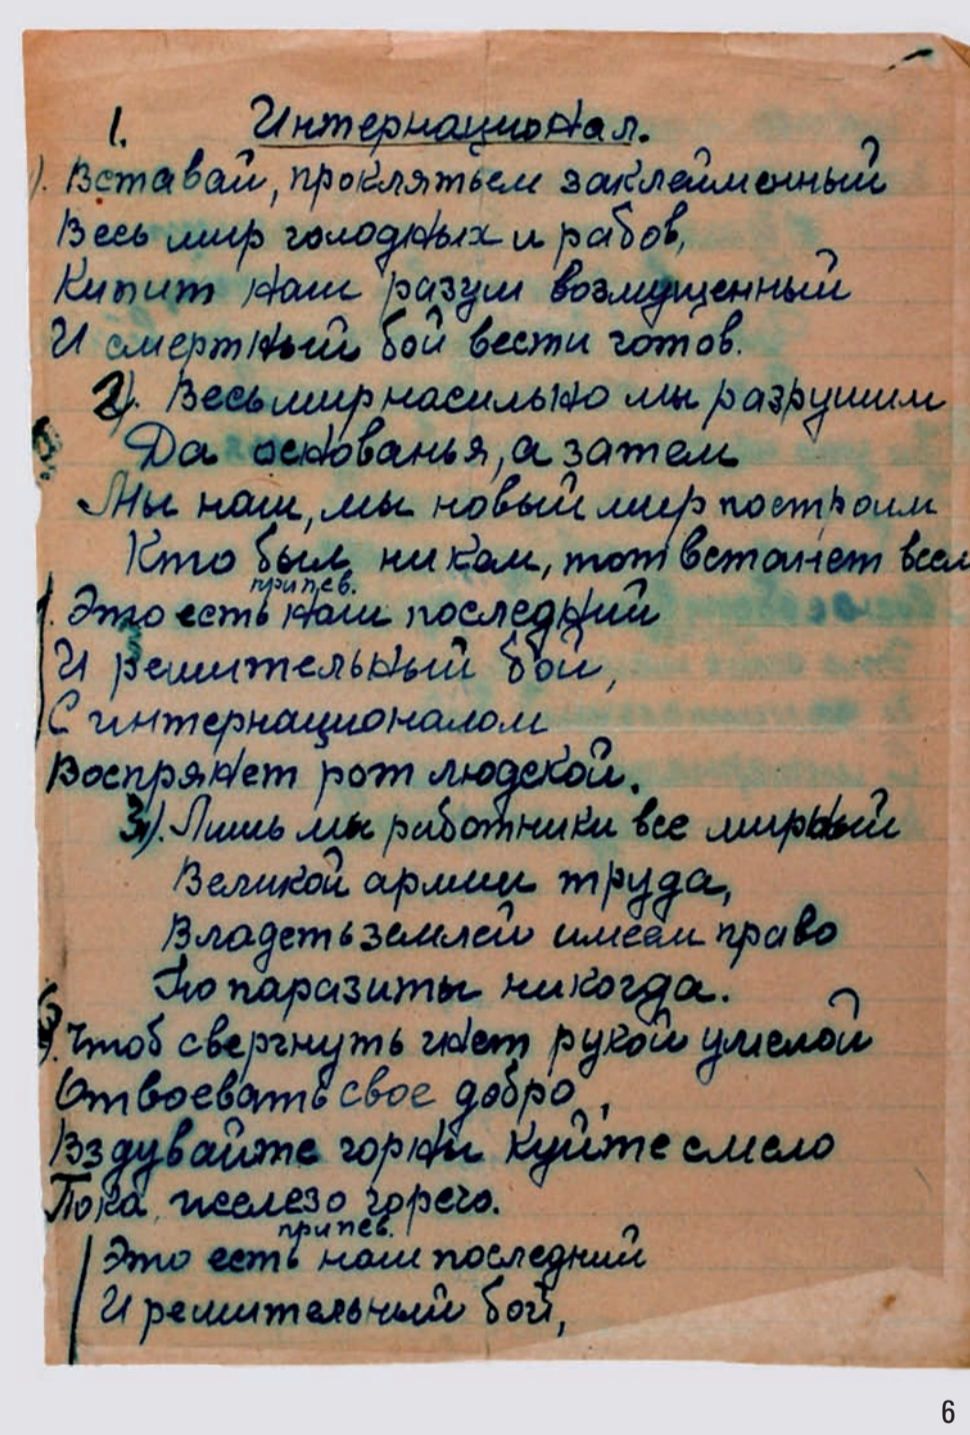 1. Интернационал.
1). Вставай, проклятьем заклейменный
Весь мир голодных и рабов,
Кипит наш разум возмущенный
И смертный бой вести готов.
2). Весь мир насилью мы разрушим
Да основанья, а затем
Мы наш, мы новый мир построим
Кто был никем, тот встанет всем
припев.
Это есть наш последний
И решительный бой,
С интернационалом
Воспрянет рот людской.
3). Лишь мы работники все мирный
Великой армии труда,
Владеть землей имеем право
Но паразиты никогда.
Чтоб свергнуть гнет рукой умелой
Отвоевать свое добро,
Вздувайте горны куйте смело
Пока железо горечо.
припев.
Это есть наш последний
И решительный бой,
6